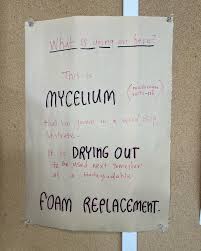 What is going on here?
This is
MYCELIUM (mushroom
that has grown in a
substrate.
It is DRYING OUT
to be used next
as a biodegradable
FOAM REPLACEMENT.